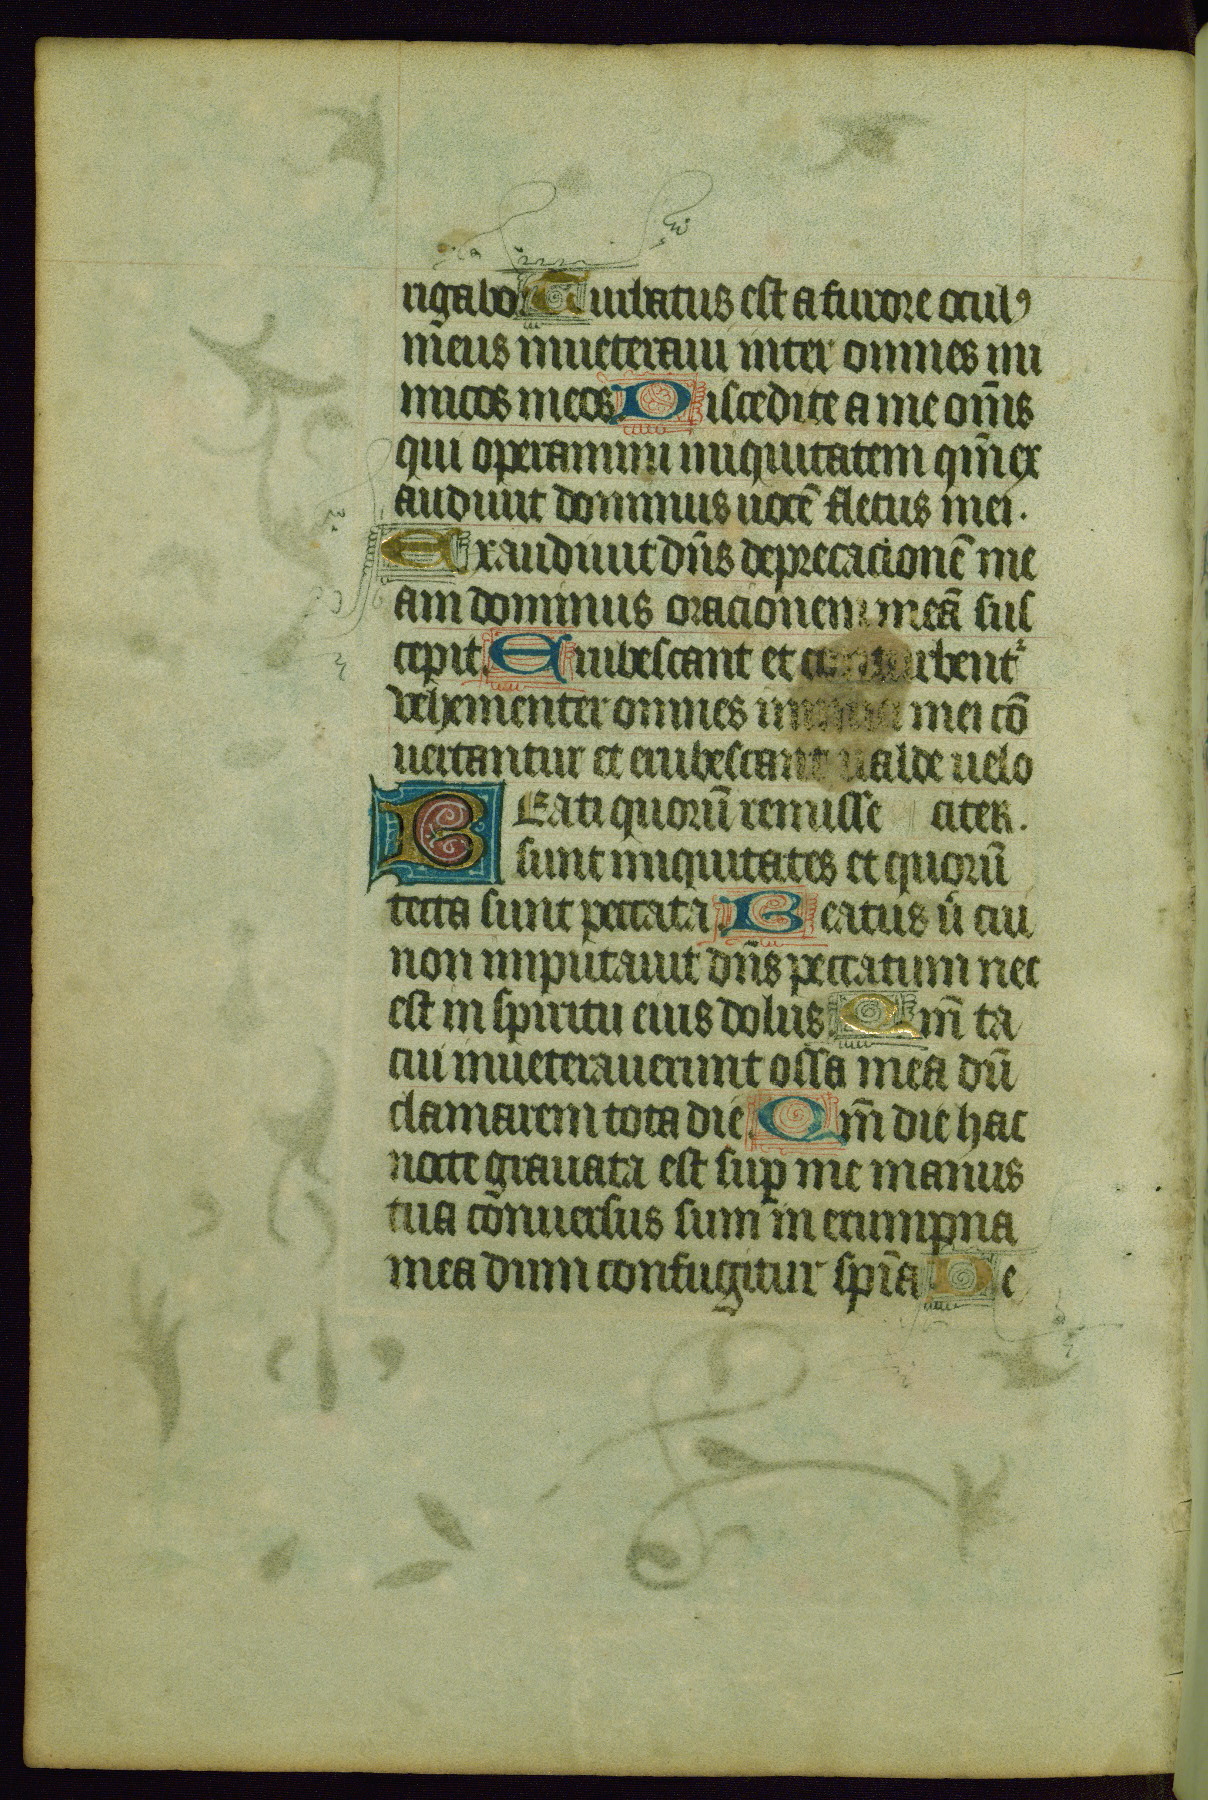 rigabo. Turbatus est a furore ocul⁹
meus inueteraui inter omnes ini
micos meos. Discedite a me om̄s
qui operamini iniquitatem qm̄ ex
audiuit dominus uocē fletus mei.
Exaudiuit dn̄s deprecacionē me
am dominus oracionem meā sus
cepit. Erubescant et conturbent᷑
vehementer omnes inimici mei cō
uertantur et erubescant ualde uelo
BEati quorū remisse citer.
sunt iniquitates et quorū
tecta sunt peccata. Beatus ur̄ cui
non imputauit dn̄s peccatum nec
est in spiritu eius dolus. Qm̄ ta
cui inueterauerunt ossa mea dū
clamarem tota die. Qm̄ die hac
nocte grauata est suꝑ me manus
tua cōnuersus sum in erumpna
mea dum confugitur spīa. De